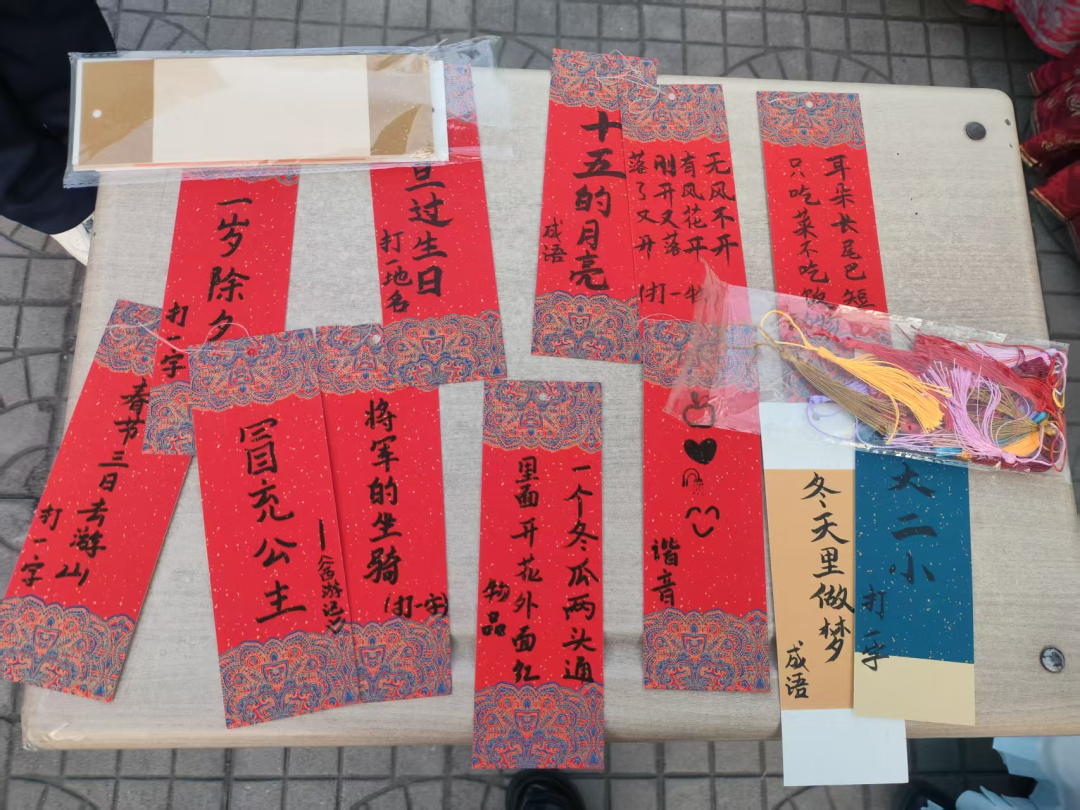 一岁除夕
打一字
旦过生日
打一地名
十五的月亮
成语
无风不开
有风花开
刚开又落
落了又开
(打一物
耳朵长尾巴短
只吃菜不吃
春节三日去游山
打一字
冒充公主
—《西游记》
将军的坐骑
(打一字)
一个冬瓜两头通
里面开花外面红
物品
谐音
冬天里做梦
成语
大二小
打一字